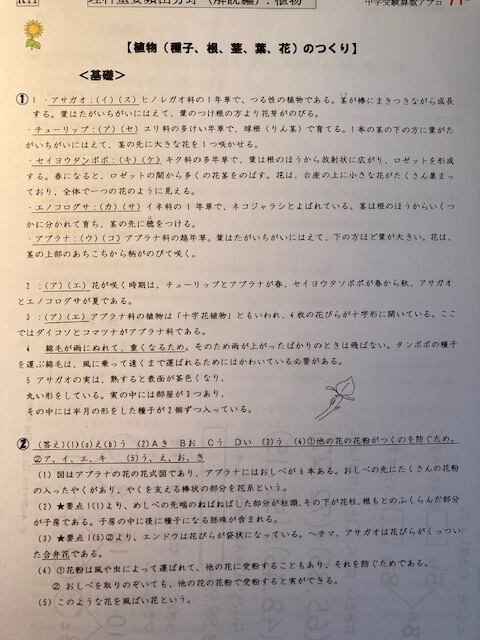 理科重要頻出分野（解説編）：植物
中学受験算数アプロ
【植物（種子、根、茎、葉、花）のつくり】
＜基礎＞
① 1 ・アサガオ：（イ）（ス） ヒルガオ科の１年草で、つる性の植物である。茎が棒にまきつきながら成長
する。葉はたがいちがいにはえて、葉のつけ根の方より花芽がのびる。
・チューリップ：（ア）（セ） ユリ科の多けい年草で、球根（りん茎）で育てる。１本の茎の下の方に葉がた
がいちがいにはえて、茎の先に大きな花を１つ咲かせる。
・セイヨウタンポポ：（キ）（ケ） キク科の多年草で、葉は根のほうから放射状に広がり、ロゼットを形成
する。春になると、ロゼットの間から多くの花茎をのばす。花は、台座の上に小さな花がたくさん集ま
っており、全体で一つの花のように見える。
・エノコログサ：（カ）（サ） イネ科の１年草で、ネコジャラシとよばれている。茎は根のほうからいくつ
かに分かれて育ち、茎の先に穂をつける。
・アブラナ：（ウ）（コ） アブラナ科の越年草。葉はたがいちがいにはえて、下の方ほど葉が大きい。花は、
茎の上部のあちこちから柄がのびて咲く。
2 ：（ア）（エ） 花が咲く時期は、チューリップとアブラナが春、セイヨウタンポポが春から秋、アサガオ
とエノコログサが夏である。
3 ：（ア）（エ） アブラナ科の植物は「十字花植物」ともいわれ、４枚の花びらが十字形に開いている。ここ
ではダイコンとコマツナがアブラナ科である。
4 綿毛が雨にぬれて、重くなるため。そのため雨が上がったばかりのときは飛ばない。タンポポの種子
を運ぶ綿毛は、風に乗って遠くまで運ばれるためにはかわいている必要がある。
5 アサガオの実は、熟すると表面が茶色くなり、
丸い形をしている。実の中には部屋が３つあり、
その中には半月の形をした種子が２個ずつ入っている。
② （答え）（1）（a）え（b）う （2）Aき Bお Cう Dい （3）う （4）①他の花の花粉がつくのを防ぐため。
②ア、イ、エ、キ （5）う、え、お、き
（1）図はアブラナの花の花式図であり、アブラナにはおしべが６本ある。おしべの先にたくさんの花粉
の入ったやくがあり、やくを支える棒状の部分を花糸という。
（2）★要点１（1）より、めしべの先端のねばねばした部分が柱頭、その下が花柱、根もとのふくらんだ部分
が子房である。子房の中に後に種子になる胚珠が含まれる。
（3）★要点１（5）②より、エンドウは花びらが袋状になっている。ヘチマ、アサガオは花びらがくっつい
た合弁花である。
（4）①花粉は風や虫によって運ばれて、他の花に受粉することもあり、それを防ぐためである。
② おしべを取りのぞいても、他の花の花粉で受粉すると実ができる。
（5）このような花を風ばい花という。